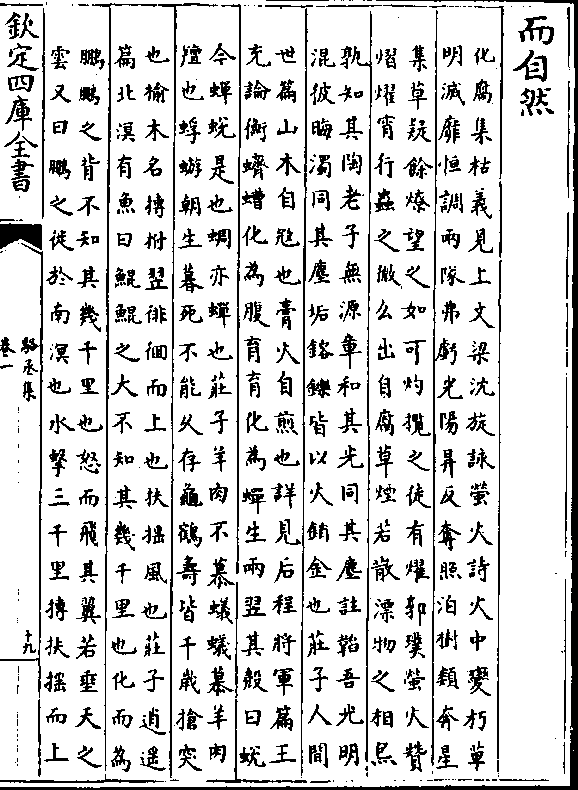 而自然
化腐集枯義見上文梁沈旋詠螢火詩火中變朽草
明滅靡恒調雨隊弗虧光陽昇反奪照泊樹類奔星
集草疑餘燎望之如可灼攬之徒有燿郭璞螢火贊
熠燿宵行蟲之微么出自腐草煙若散漂物之相煦
孰知其陶老子無源車和其光同其塵註韜吾光明
混彼晦濁同其塵垢鎔鑠皆以火銷金也莊子人間
世篇山木自冦也膏火自煎也詳見后程將軍篇王
充論衡蠐螬化為腹育育化為蟬生兩翌其殻曰蛻
今蟬蛻是也蜩亦蟬也莊子羊肉不慕蟻蟻慕羊肉
羶也蜉蝣朝生暮死不能久存龜鶴壽皆千嵗搶突
也榆木名摶拊翌徘徊而上也扶揺風也莊子逍遥
篇北溟有魚曰鯤鯤之大不知其幾千里也化而為
鵬鵬之背不知其幾千里也怒而飛其翼若垂天之
雲又曰鵬之徙於南溟也水擊三千里摶扶揺而上
欽定四庫全書
駱丞集
卷一
十九